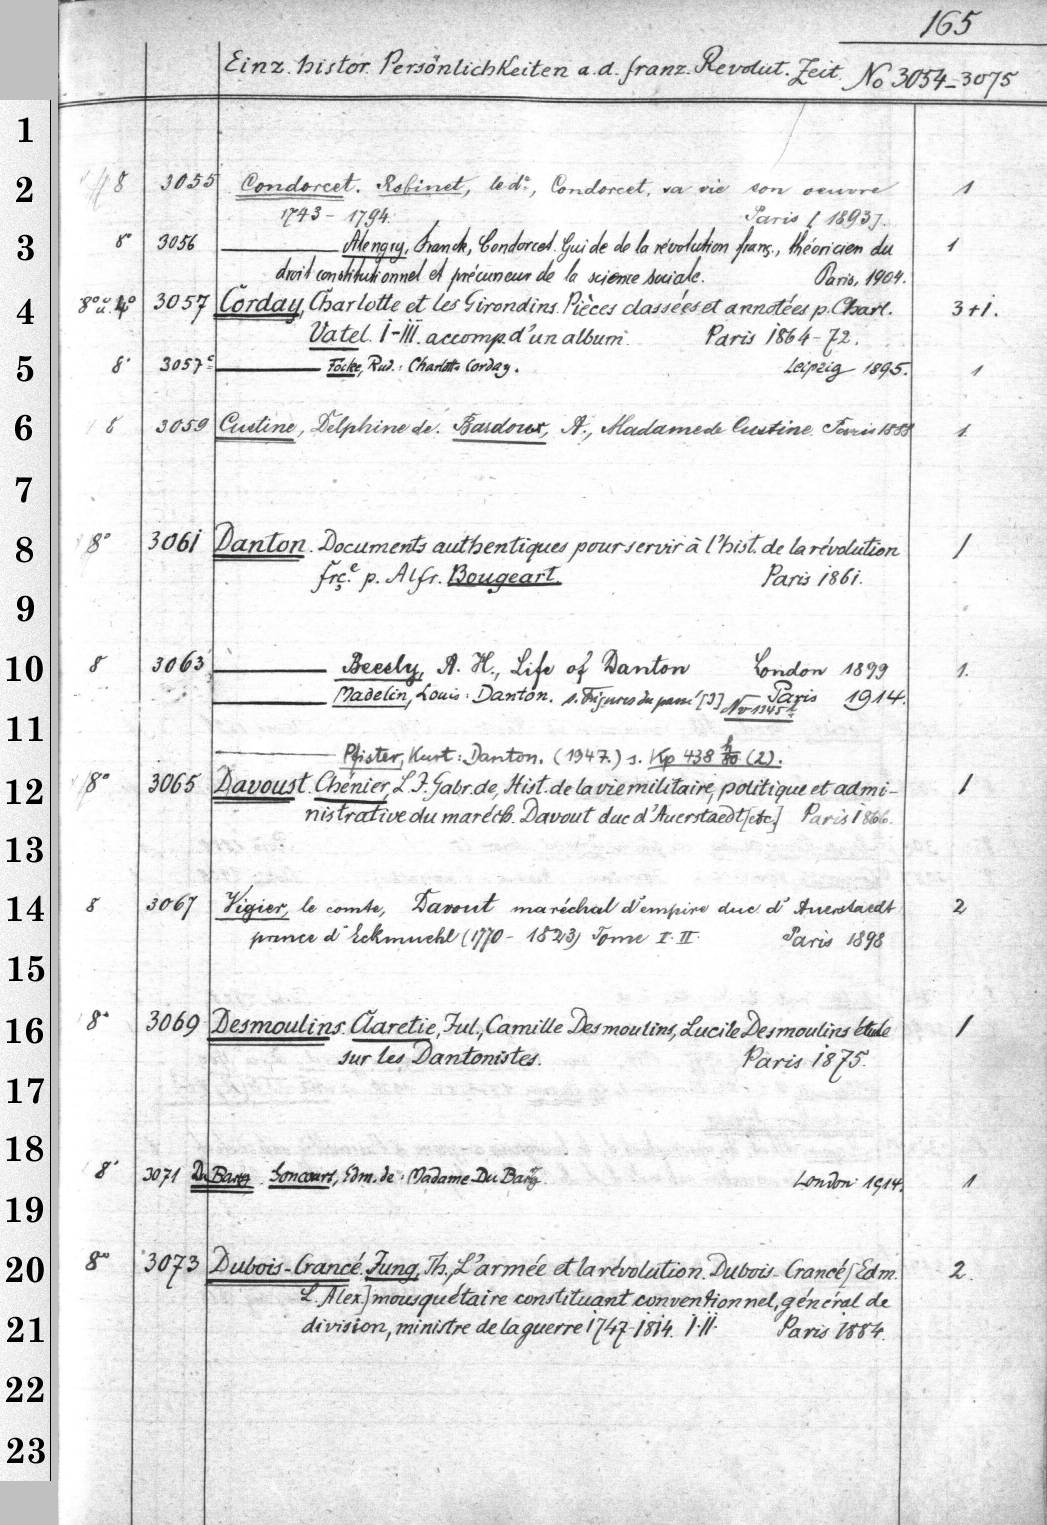 165
Einz. histor. Persönlichkeiten a. d. franz. Revolut. Zeit. No 3054-3075
1
2 8 3055 Condorcet. Robinet, le dr., Condorcet, sa vie son oeuvre 1
1743 - 1794. Paris [1893].
3 8° 3056 Alengry, Franck, Condorcet. Guide de la révolution franç., théoricien du 1
droit constitutionnel et précurseur de la science sociale. Paris, 1904.
4 8° u. 4° 3057 Corday, Charlotte et les Girondins. Pièces classées et annotées p. Charl. 3+1.
Vatel. I-III. accomp. d'un album. Paris 1864-72.
5 8° 3057c Focke, Rud.: Charlotte Corday. Leipzig 1895. 1
6 8 3059 Custine, Delphine de. Bardoux, A., Madame de Custine. Paris 1888 1.
7
8 8° 3061 Danton. Documents authentiques pour servir à l'hist. de la révolution 1
frçe. p. Alfr. Bougeart. Paris 1861.
9
10 8 3063 Beesly, A. H., Life of Danton London 1899 1.
Madelin, Louis: Danton. s. Figures du passé [3] No 1345 Paris 1914.
11
Pfister, Kurt: Danton. (1947.) s. Kp 438 h/80 (2).
12 8° 3065 Davoust. Chénier, L. J. Gabr. de, Hist. de la vie militaire, politique et admi- 1
nistrative du maréch. Davout duc d'Auerstaedt [etc.] Paris 1866.
13
14 8 3067 Vigier, le comte, Davout maréchal d'empire duc d'Auerstaedt 2
prince d'Eckmuehl (1770 - 1823) Tome I. II. Paris 1898
15
16 8° 3069 Desmoulins. Claretie, Jul., Camille Desmoulins, Lucile Desmoulins étude 1
sur les Dantonistes. Paris 1875.
17
18
8° 3071 Du Barry. Goncourt, Edm. de: Madame Du Barry. London 1914. 1
19
20 8° 3073 Dubois-Crancé. Jung, Th., L'armée et la révolution. Dubois-Crancé [Edm. 2.
L. Alex.] mousquétaire constituant conventionnel, général de
21 division, ministre de la guerre 1747-1814. I-II. Paris 1884.
22
23